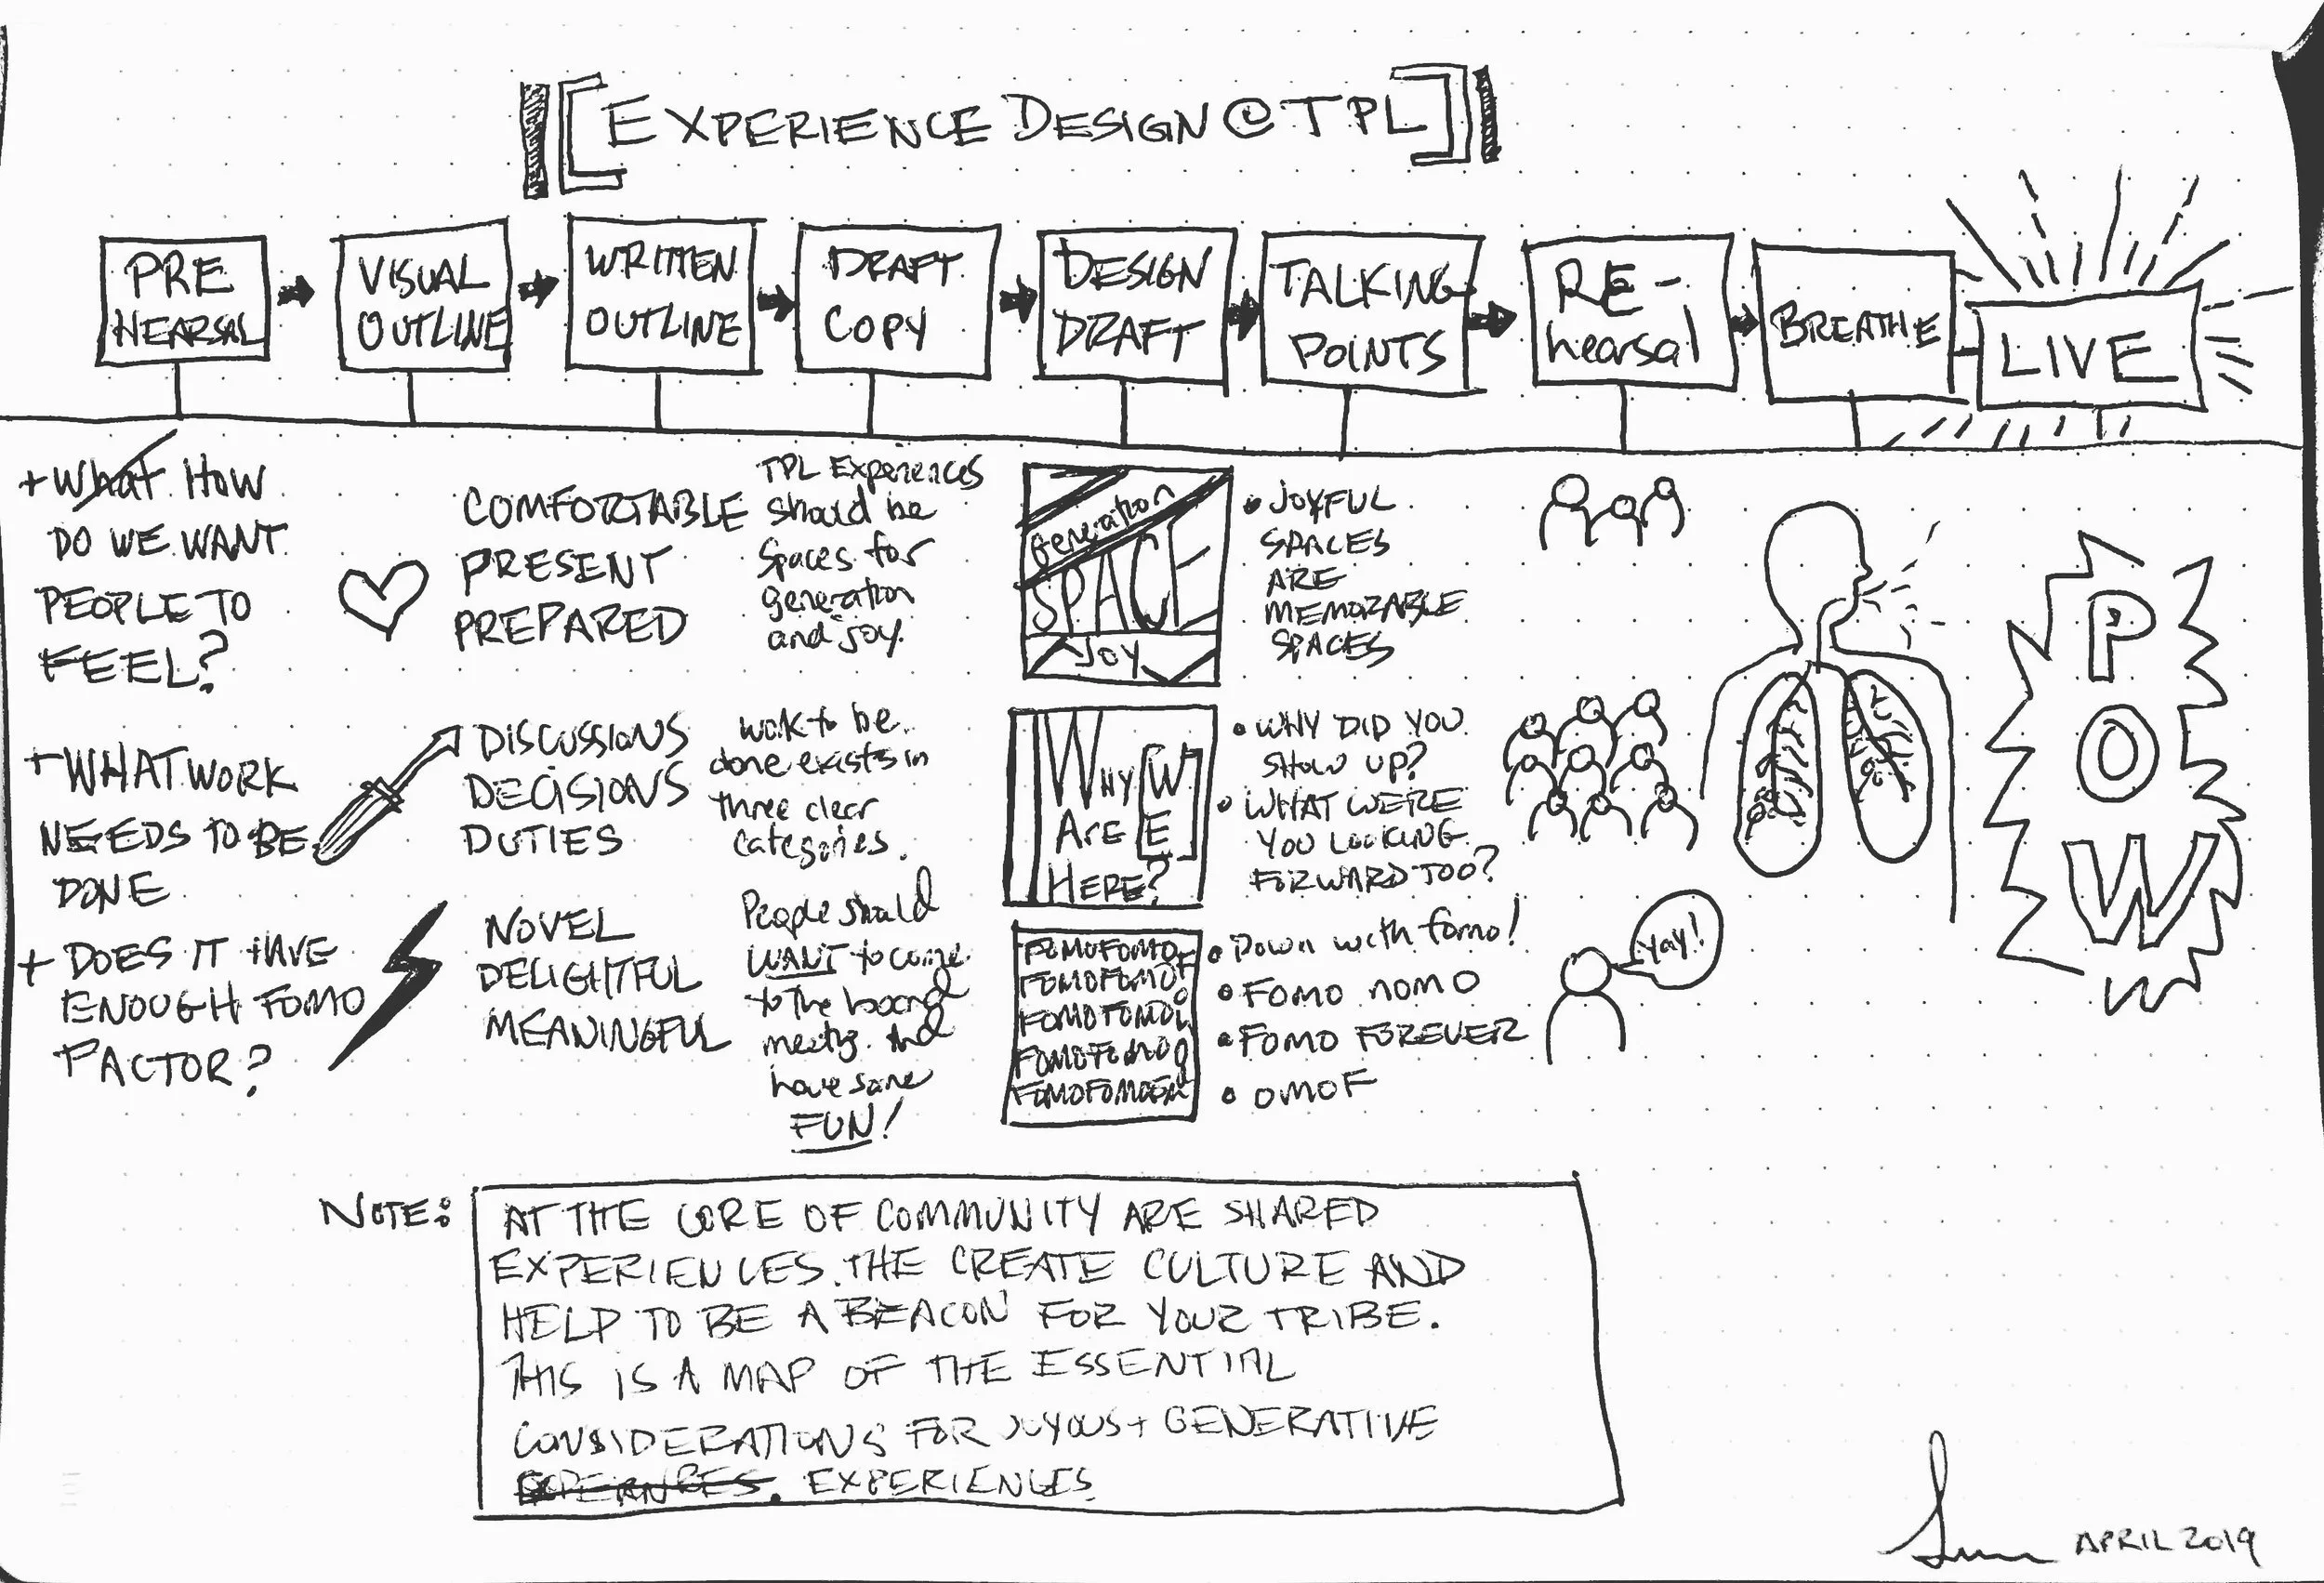 [EXPERIENCE DESIGN @ TPL]
PRE
HEARSAL
VISUAL
OUTLINE
WRITTEN
OUTLINE
DRAFT
COPY
DESIGN
DRAFT
TALKING
POINTS
RE-
hearsal
BREATHE
LIVE
+ What HOW
DO WE WANT
PEOPLE TO
FEEL?
+ WHAT WORK
NEEDS TO BE
DONE
+ DOES IT HAVE
ENOUGH FOMO
FACTOR?
COMFORTABLE
PRESENT
PREPARED
DISCUSSIONS
DECISIONS
DUTIES
NOVEL
DELIGHTFUL
MEANINGFUL
TPL Experiences
should be
spaces for
generation
and joy.
work to be
done exists in
three clear
categories.
People should
WANT to come
to the board
meeting. And
have some
FUN!
Generation
SPACE
JOY
WHY WE
ARE
HERE?
FOMOFOMOF
FOMOFOMOF
FOMOFOMO
FOMOFOMO
FOMOFOMO
• JOYFUL
SPACES
ARE
MEMORABLE
SPACES
• WHY DID YOU
SHOW UP?
• WHAT WERE
YOU LOOKING
FORWARD TOO?
• Down with fomo!
• FOMO NOMO
• FOMO FOREVER
• OMOF
Yay!
POW
NOTE:
AT THE CORE OF COMMUNITY ARE SHARED
EXPERIENCES. THE CREATE CULTURE AND
HELP TO BE A BEACON FOR YOUR TRIBE.
THIS IS A MAP OF THE ESSENTIAL
CONSIDERATIONS FOR JOYOUS + GENERATIVE
EXPERIENCES
APRIL 2019